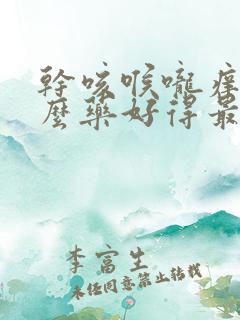 幹咳喉嚨痒
麼藥好得最
李富生
未经同意禁止转载